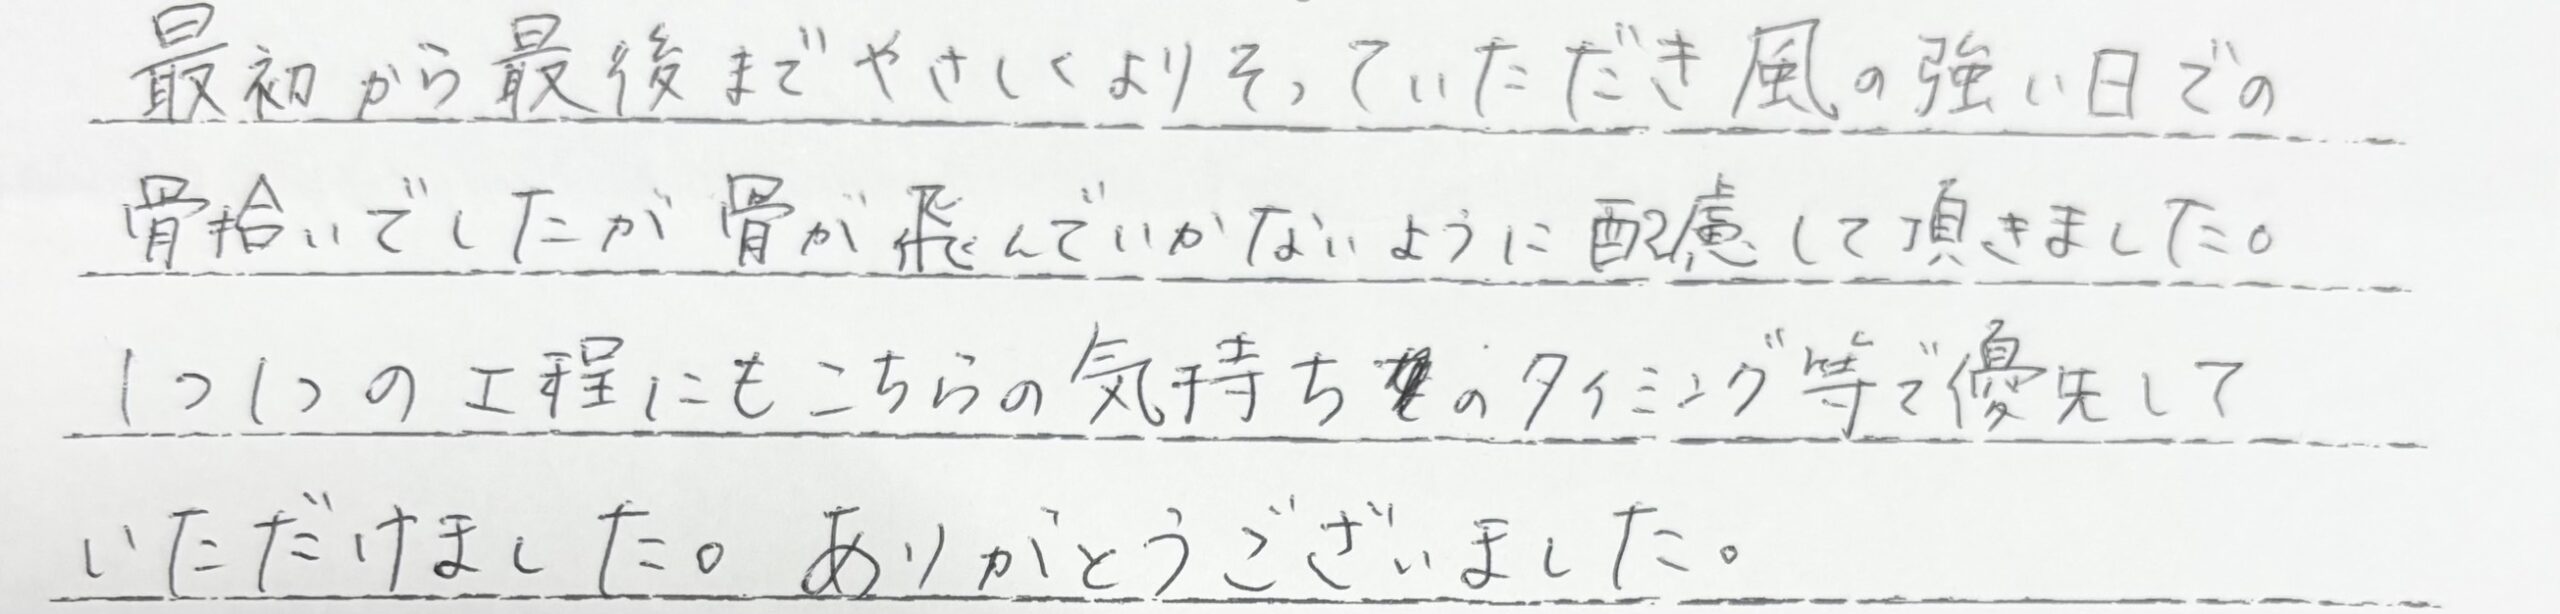 最初から最後までやさしくよりそっていただき風の強い日での
骨拾いでしたが骨が飛んでいかないように配慮して頂きました。
1つ1つの工程にもこちらの気持ちのタイミング等で優先して
いただけました。ありがとうございました。